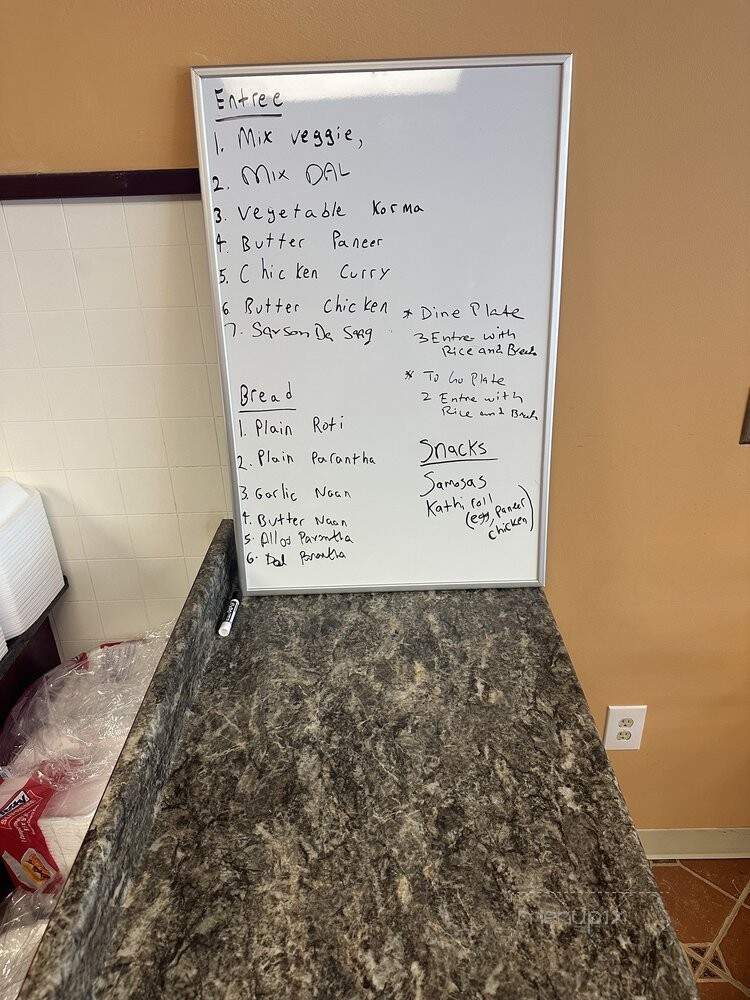 Entree
1. Mix veggie,
2. Mix DAL
3. Vegetable Korma
4. Butter Paneer
5. Chicken Curry
6 Butter Chicken
7. Sarson Da Saag
* Dine Plate
3 Entre with
Rice and Bread
* To Go Plate
2 Entre with
Rice and Bread
Bread
1. Plain Roti
2. Plain Parantha
3. Garlic Naan
4. Butter Naan
5. Alloo Parantha
6. Dal Parantha
Snacks
Samosas
Kathi roll
(egg, Paneer
chicken)
menupix